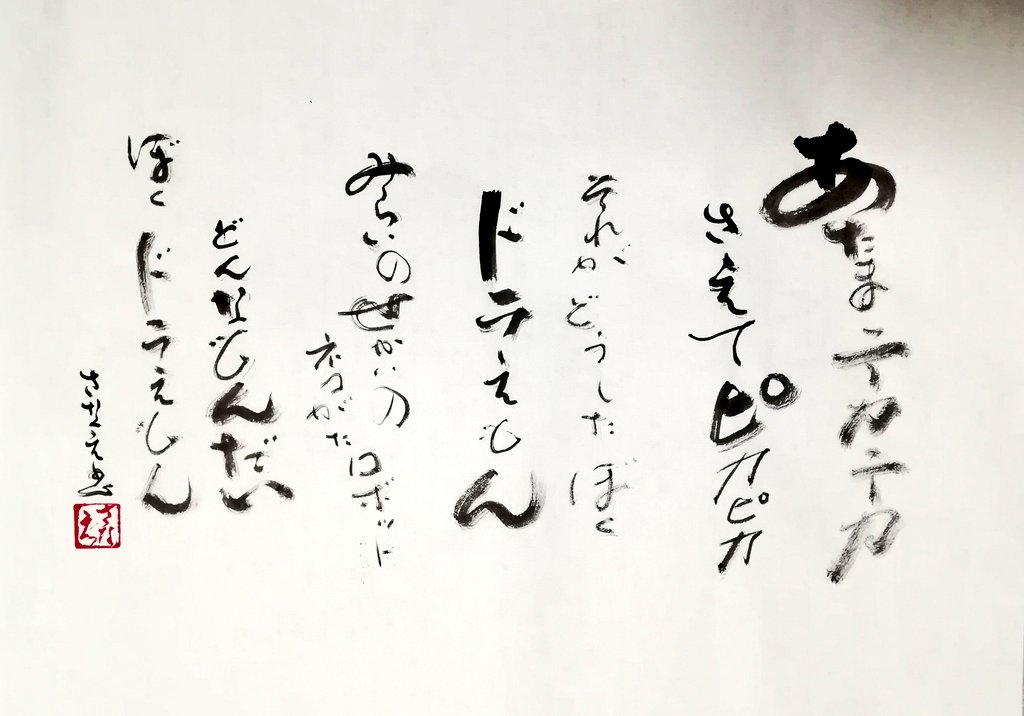 あたまテカテカ
さえてピカピカ
それがどうしたぼく
ドラえもん
みらいのせかいの
ネコがたロボット
どんなもんだい
ぼくドラえもん
さなえ書
さなえ